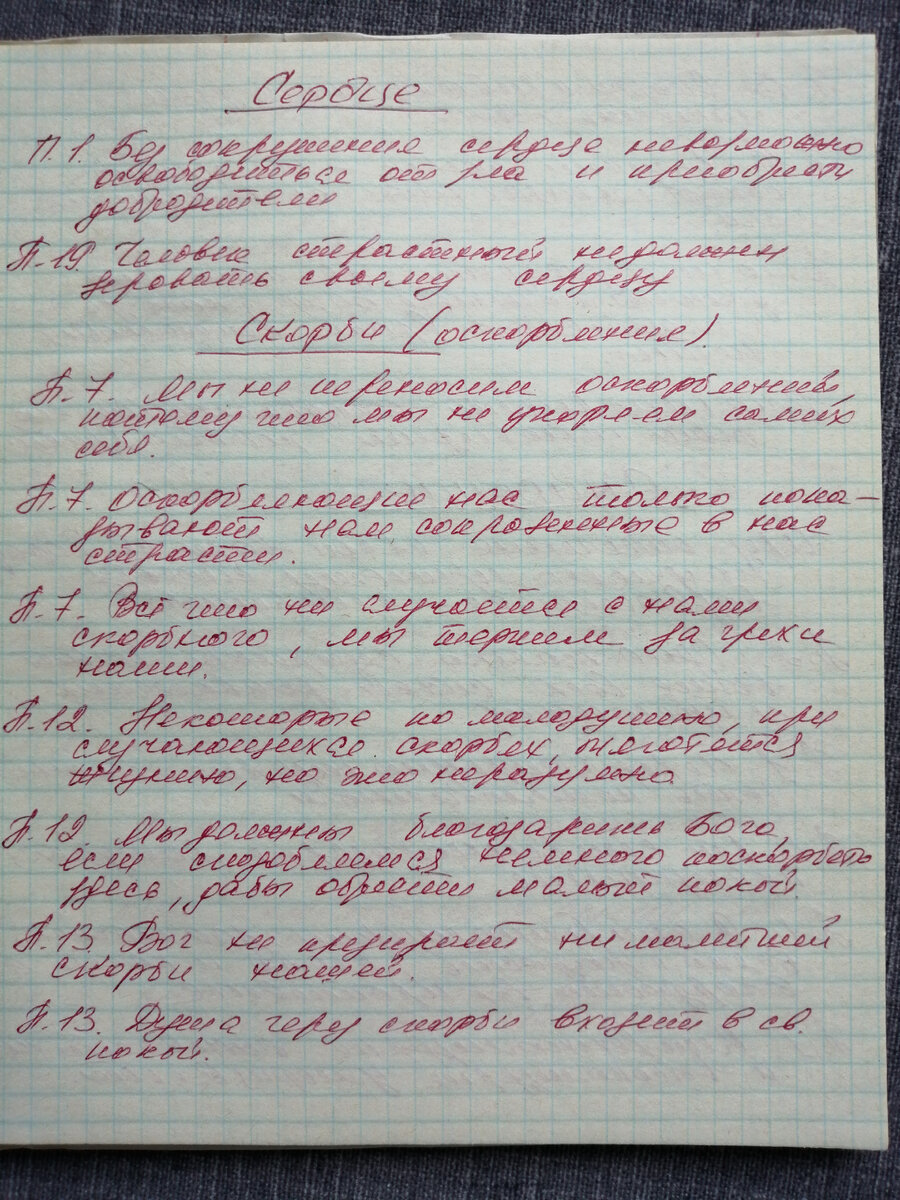 Сердце
П.1. Без сокрушения сердца невозможно
освободиться от зла и приобрести
добродетели
П.19. Человек страстный не должен
веровать своему сердцу
Скорби (оскорбления)
П.7. Мы не переносим оскорблений,
потому что мы не укоряем самих
себя.
П.7. Оскорбляющие нас только пока-
зывают нам сокровенные в нас
страсти.
П.7. Всё что ни случается с нами
скорбного, мы терпим за грехи
наши.
П.12. Некоторые по малодушию, при
случающихся скорбех, тяготятся
жизнию, но это неразумно
П.12. Мы должны благодарить Бога,
если сподобляемся немного поскорбеть
здесь, дабы обрести малый покой
П.13 Бог не презирает ни малейшей
скорби нашей.
П.13. Душа через скорби входит в св.
покой.